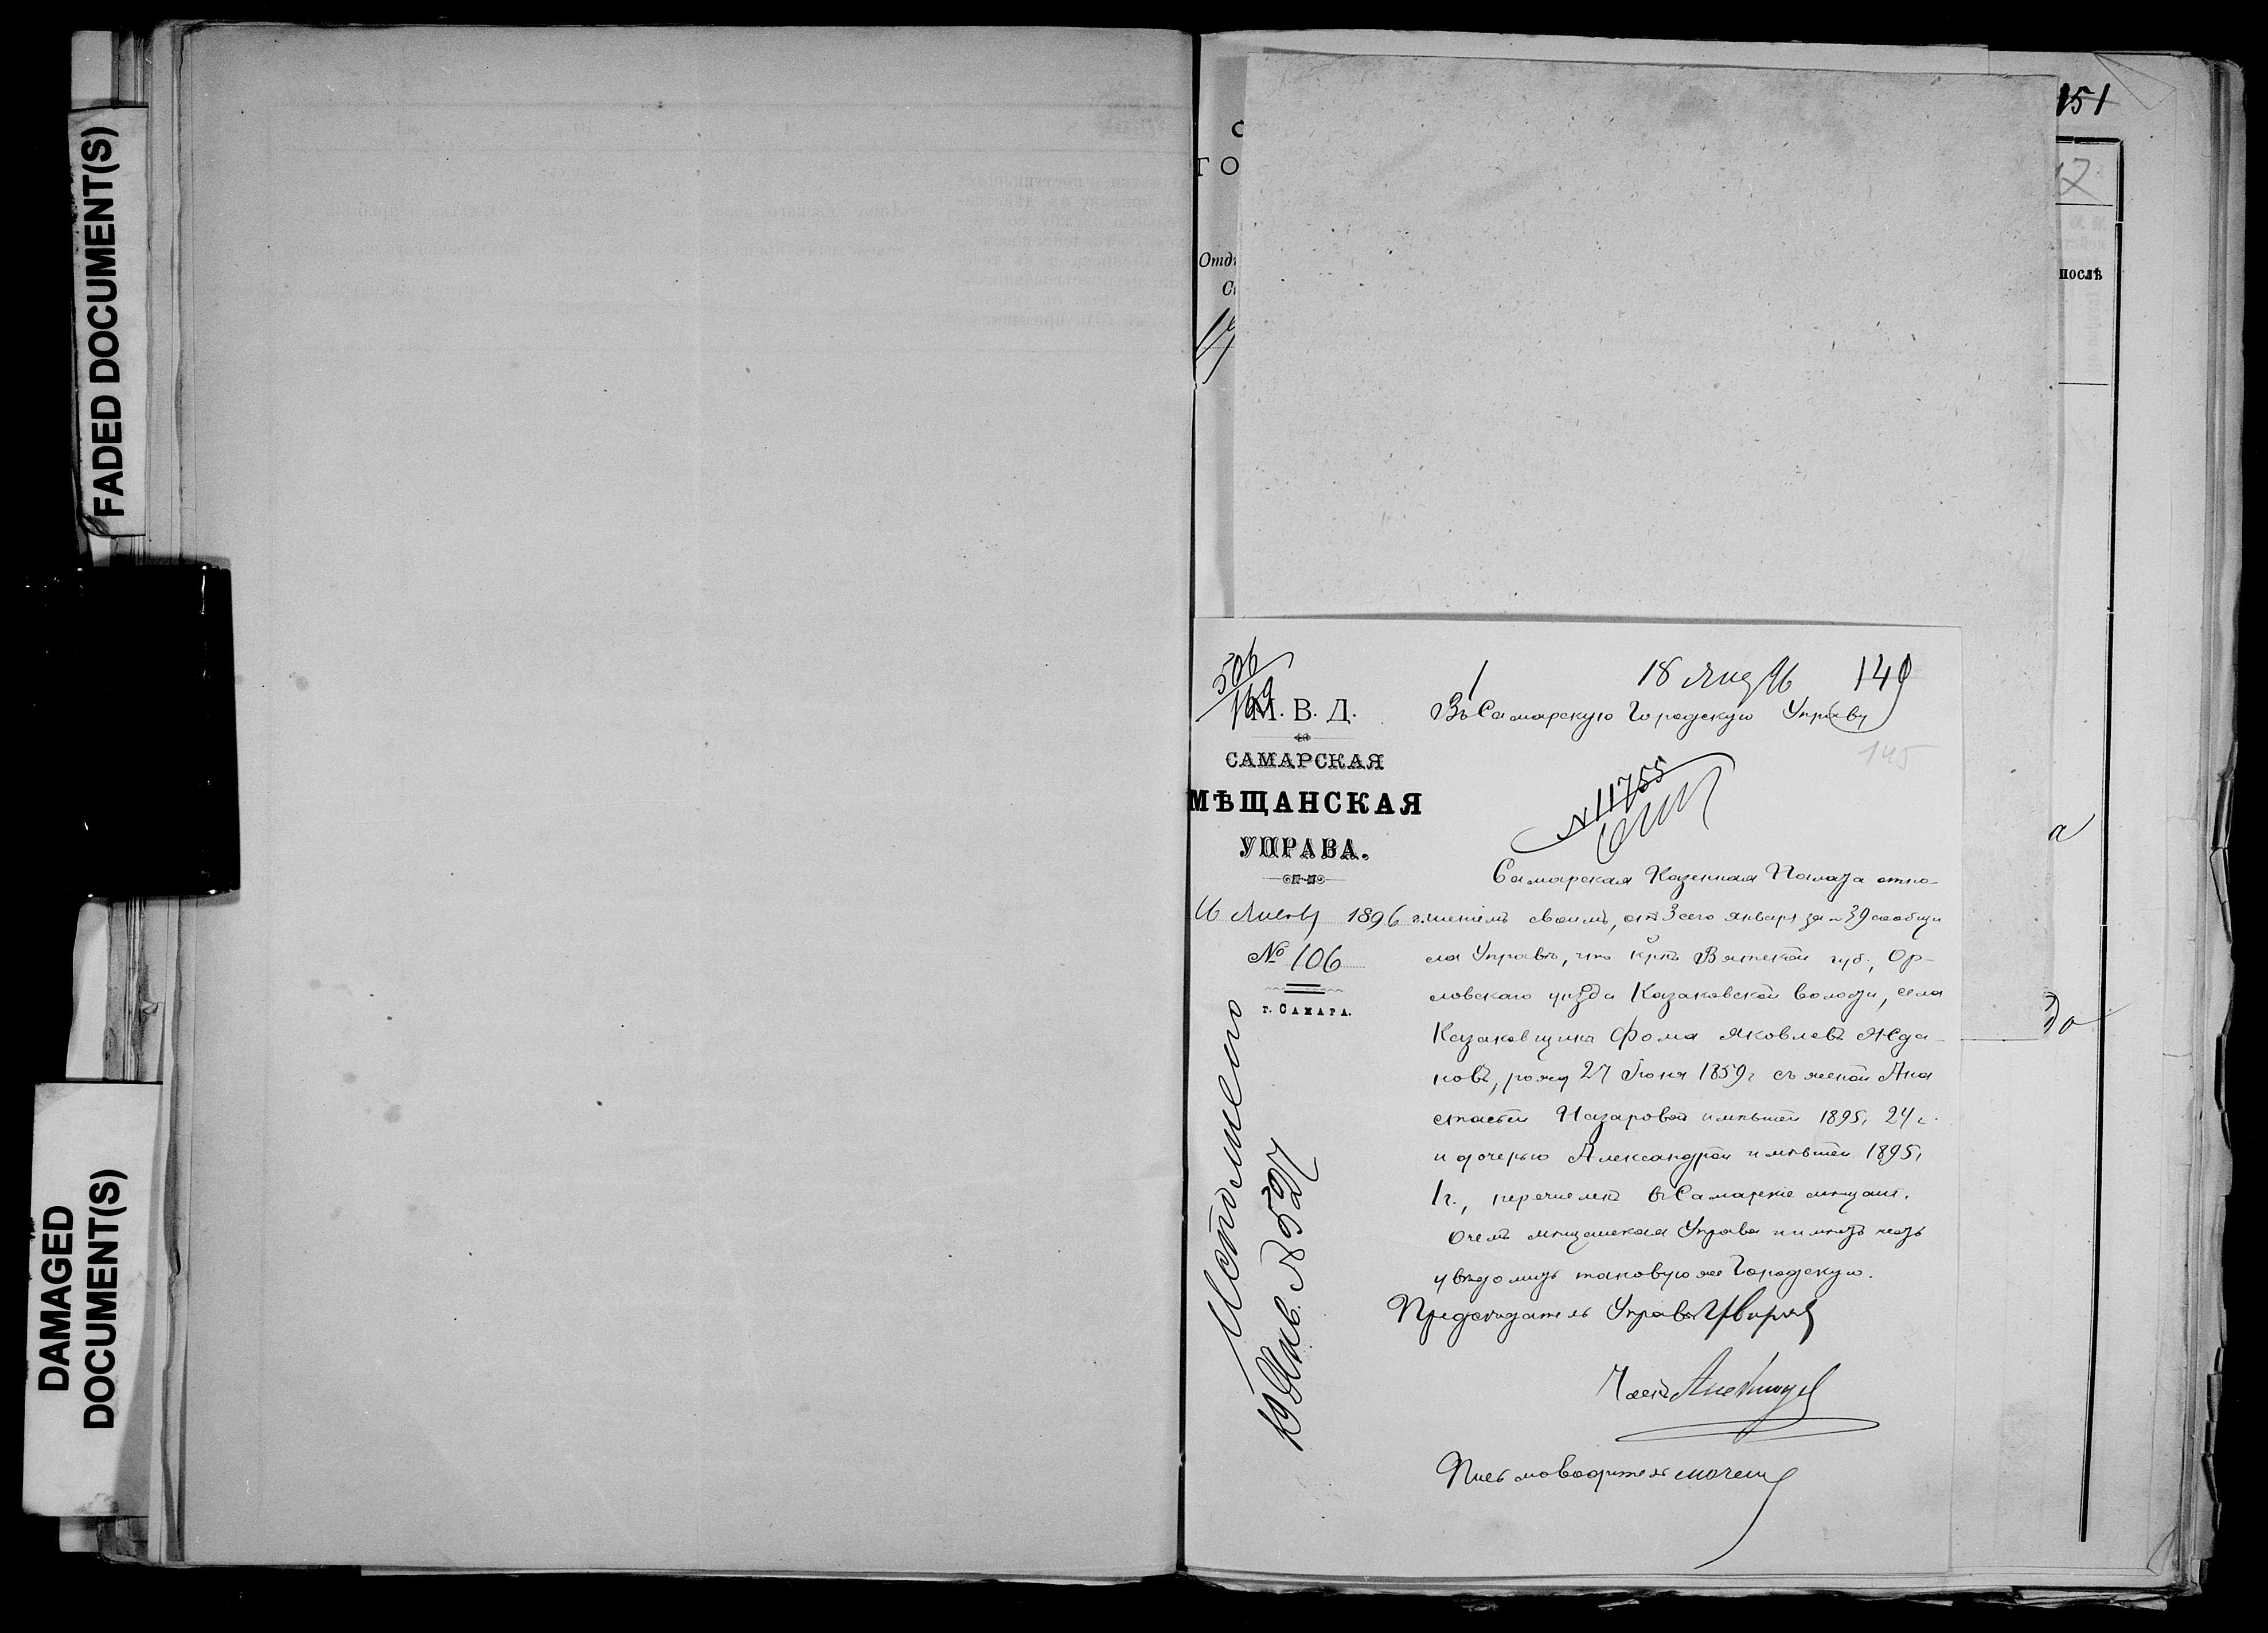 FADED DOCUMENT(S)
DAMAGED
DOCUMENT(S)
151
послѣ
506
169
18 янв 96 149
М. В. Д.
САМАРСКАЯ
МѢЩАНСКАЯ
УПРАВА.
16 Января 1896 г.
№ 106
г. САМАРА.
Въ Самарскую Городскую Управу
145
№ 11755
Самарская Казенная Палата отно-
шеніемъ своимъ, отъ 3 сего января за № 39 сообщи
ла Управѣ, что кр-нъ Вятской губ., Ор-
ловскаго уѣзда Казаковской волости, села
Казаковщина Фома Яковлевъ Жда-
новъ, рожд 27 Іюня 1859 г съ женой Ана
стасіей Назаровой имѣвшей 1895, 24 г.
и дочерью Александрой имѣвшей 1895,
1 г., перечисленъ въ Самарскіе мѣщане.
О чемъ мѣщанская Управа и имѣетъ честь
увѣдомить таковую же Городскую.
Предсѣдатель Управы
Членъ
Письмоводитель
Исполнено
19 Янв. № 527